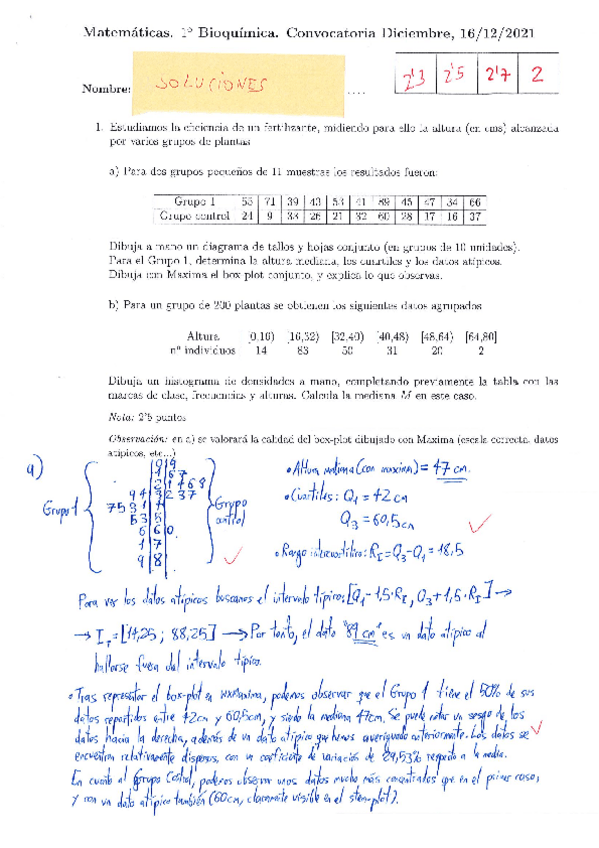 Matemáticas. 1º Bioquímica. Convocatoria Diciembre, 16/12/2021
Nombre: SOLUCIONES .... 2'3 2'5 2'7 2
1. Estudiamos la eficiencia de un fertilizante, midiendo para ello la altura (en cms) alcanzada
por varios grupos de plantas
a) Para dos grupos pequeños de 11 muestras los resultados fueron:
Grupo 1 55 71 39 43 53 41 89 45 47 34 66
Grupo control 24 9 33 26 21 32 60 28 17 16 37
Dibuja a mano un diagrama de tallos y hojas conjunto (en grupos de 10 unidades).
Para el Grupo 1, determina la altura mediana, los cuartiles y los datos atípicos.
Dibuja con Maxima el box plot conjunto, y explica lo que observas.
b) Para un grupo de 200 plantas se obtienen los siguientes datos agrupados
Altura [0,16) [16,32) [32,40) [40,48) [48,64) [64,80]
nº individuos 14 83 50 31 20 2
Dibuja un histograma de densidades a mano, completando previamente la tabla con las
marcas de clase, frecuencias y alturas. Calcula la mediana M en este caso.
Nota: 2'5 puntos
Observación: en a) se valorará la calidad del box-plot dibujado con Maxima (escala correcta, datos
atípicos, etc...)
a)
0 9
1 6 7
2 1 4 6 8
9 4 3 2 3 7
7 5 3 1 4
5 3 5
6 6 0
1 7
9 8
Grupo 1
Grupo control
• Altura mediana (con maxima) = 47 cm.
• Cuartiles: Q1 = 42 cm
Q3 = 60,5 cm
• Rango intercuartílico: RI = Q3 - Q1 = 18,5
Para ver los datos atípicos buscamos el intervalo típico: [Q1 - 1,5·RI, Q3 + 1,5·RI] →
→ IT = [14,25; 88,25] → Por tanto, el dato "89 cm" es un dato atípico al
hallarse fuera del intervalo típico.
• Tras representar el box-plot en wxMaxima, podemos observar que el Grupo 1 tiene el 50% de sus
datos repartidos entre 42cm y 60,5cm, y siendo la mediana 47cm. Se puede notar un sesgo de los
datos hacia la derecha, además de un dato atípico que hemos averiguado anteriormente. Los datos se
encuentran relativamente dispersos, con un coeficiente de variación de 29,53% respecto a la media.
En cuanto al Grupo Control, podemos observar unos datos mucho más concentrados que en el primer caso,
y con un dato atípico también (60cm, claramente visible en el stem-plot).